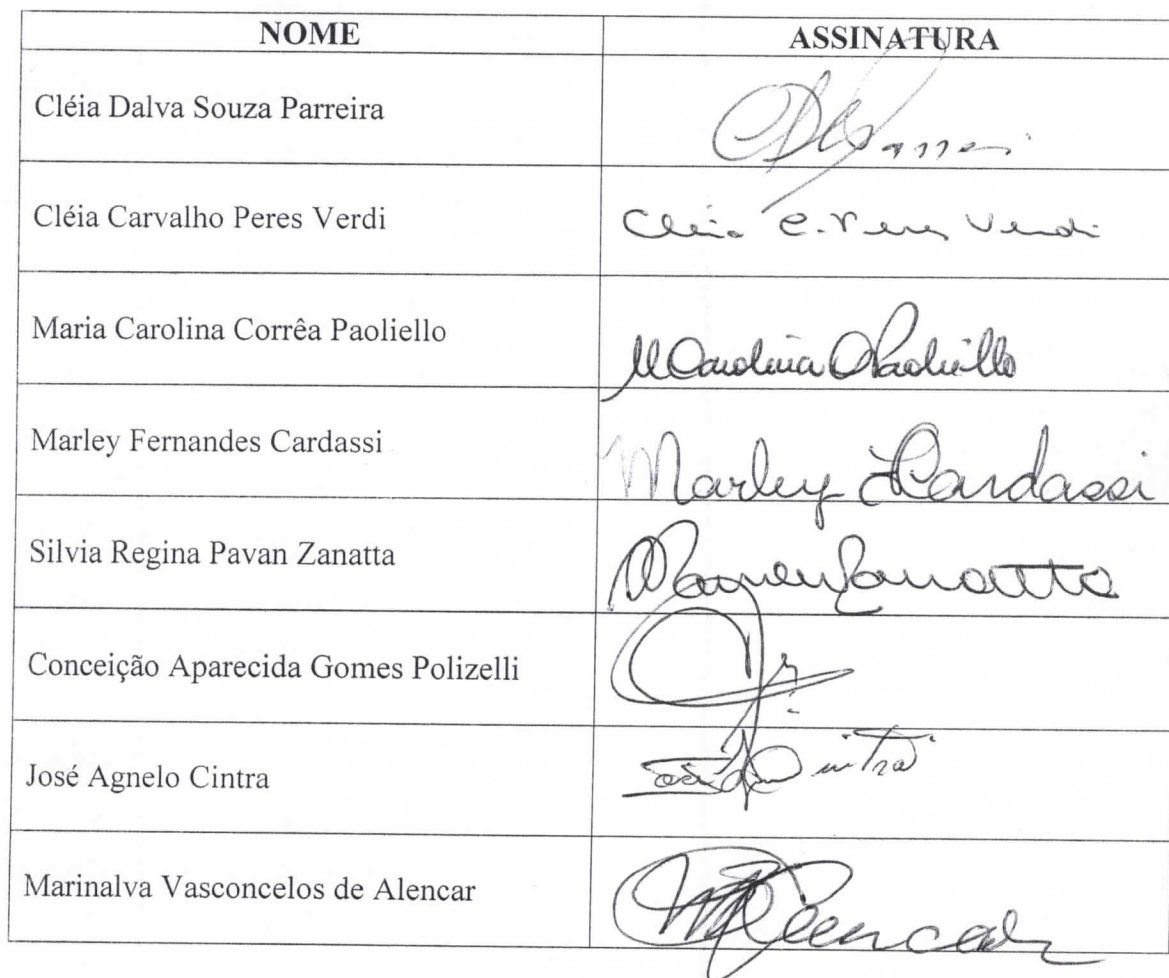 NOME ASSINATURA
Cléia Dalva Souza Parreira
Cléia Carvalho Peres Verdi Cléia C. Peres Verdi
Maria Carolina Corrêa Paoliello M Carolina CPaoliello
Marley Fernandes Cardassi Marley FCardassi
Silvia Regina Pavan Zanatta Zanatta
Conceição Aparecida Gomes Polizelli
José Agnelo Cintra Cintra
Marinalva Vasconcelos de Alencar Alencar